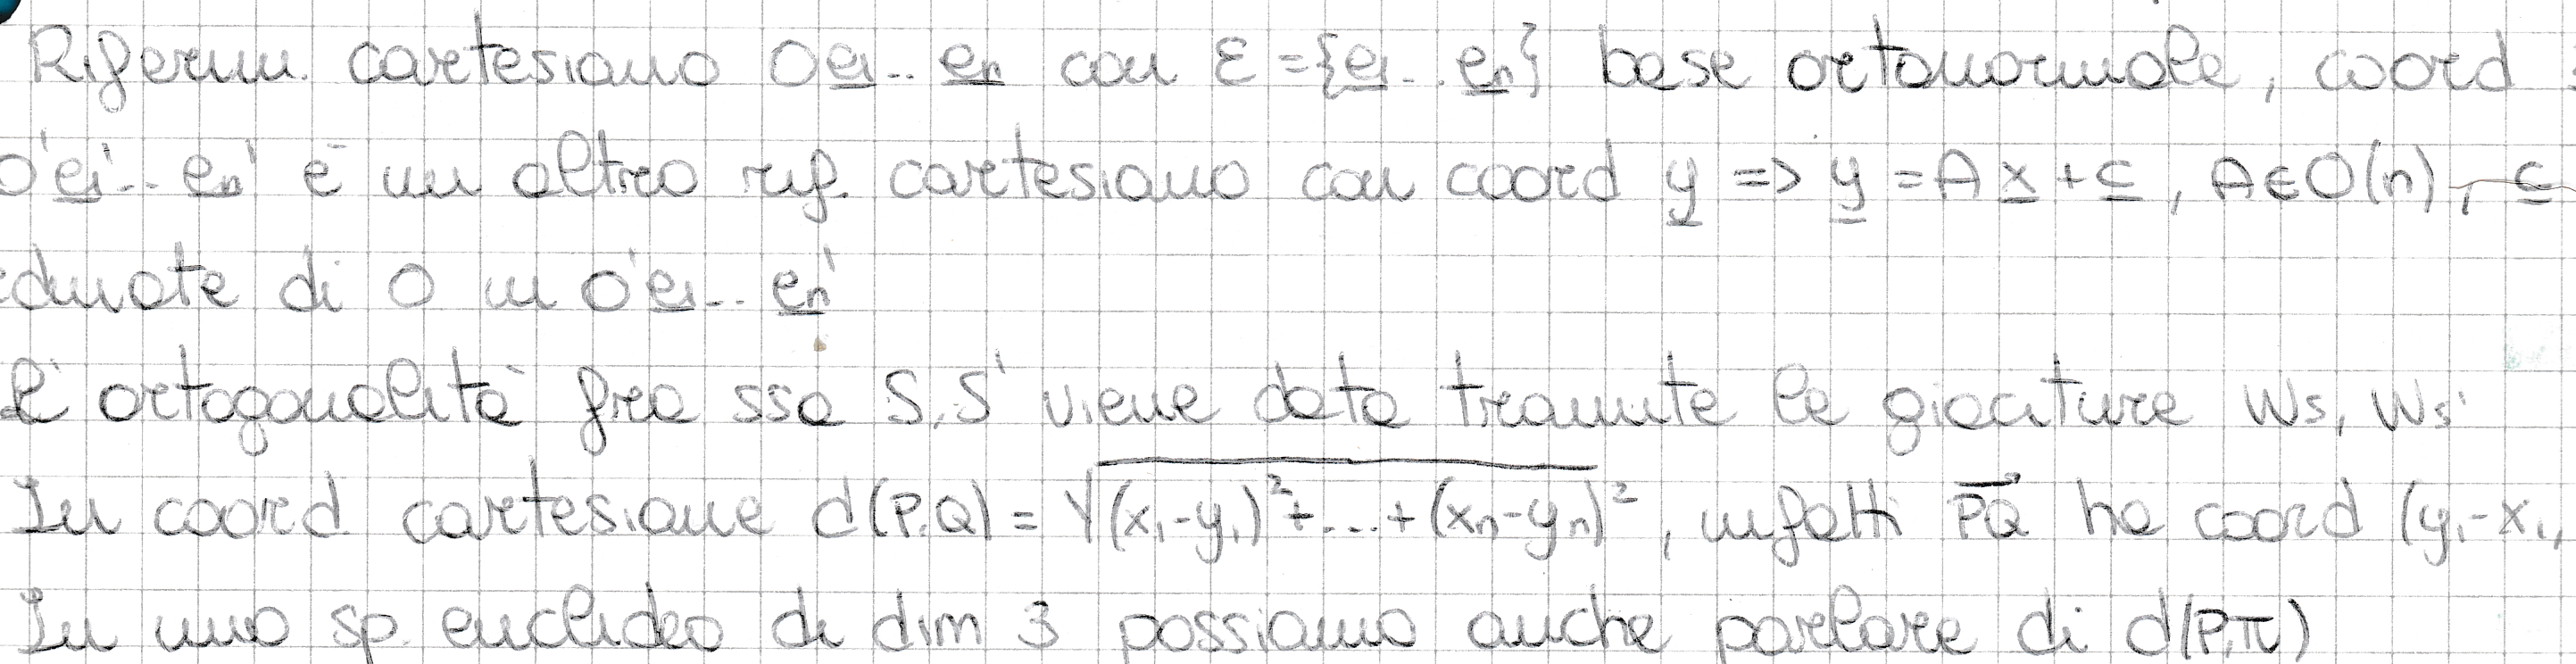 Riferim. cartesiano O e₁.. eₙ con ε = {e₁.. eₙ} base ortonormale, coord
O'e₁'.. eₙ' è un altro rif. cartesiano con coord y => y = Ax + c, A∈O(n), c
dinate di O in O'e₁'.. eₙ'
L'ortogonalità fra ssa S, S' viene data tramite le giaciture Ws, Ws'
In coord. cartesiane d(P,Q) = √(x₁-y₁)²+...+(xₙ-yₙ)², infatti PQ ha coord (y₁-x₁,
In uno sp. euclideo di dim 3 possiamo anche parlare di d(P,π)